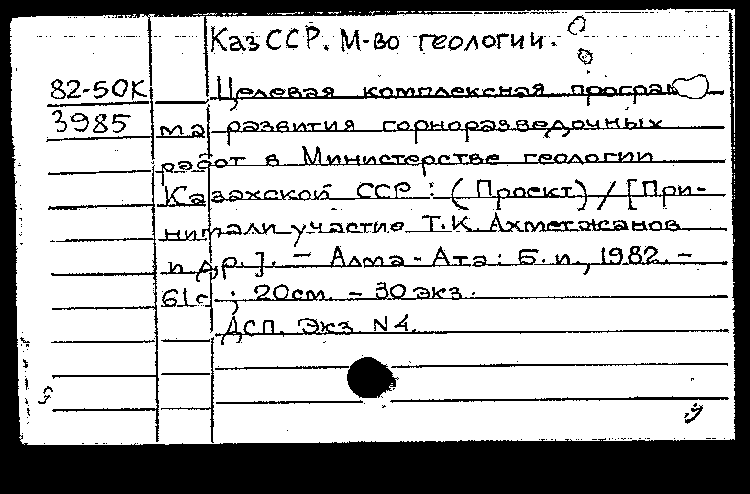 КазССР. М-во геологии.
82-50К Целевая комплексная програм
3985 ма развития горноразведочных
работ в Министерстве геологии
Казахской ССР : (Проект) / [При-
нимали участие Т.К. Ахметжанов
и др.]. – Алма-Ата: Б.и., 1982. –
61с ; 20см. – 30 экз.
ДСП. Экз N4.